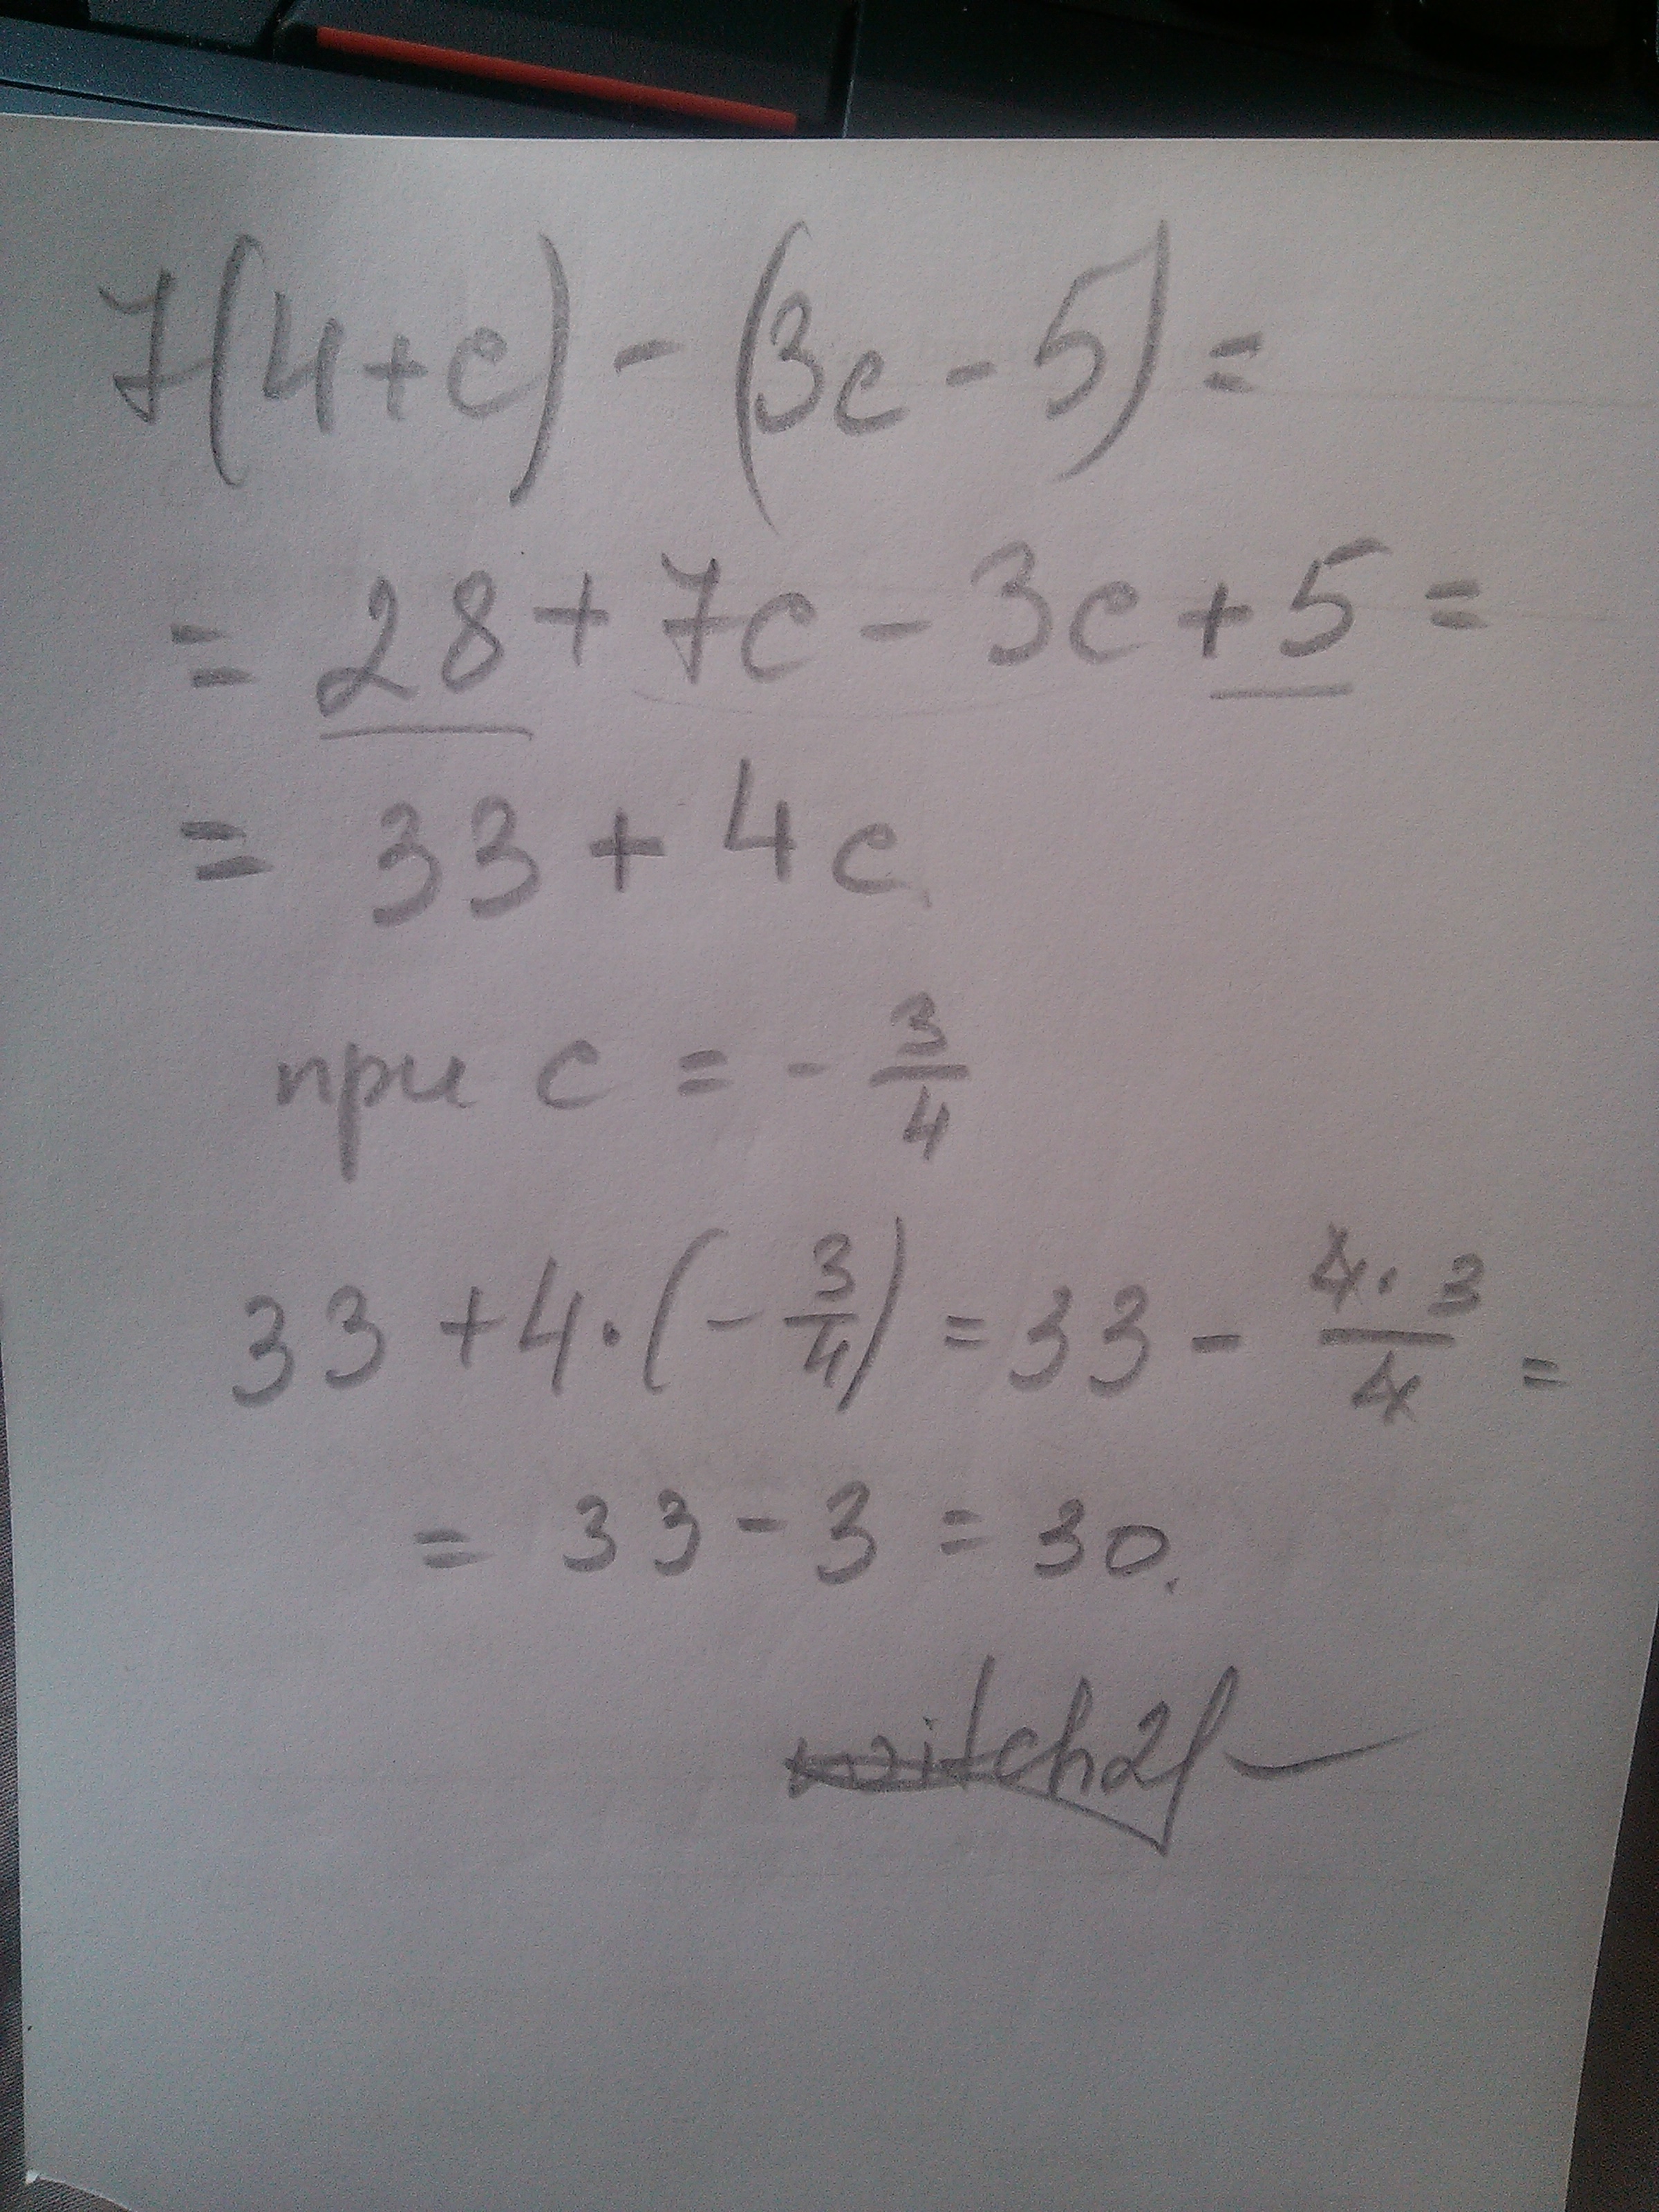 7(4+c) - (3c - 5) =
= 28 + 7c - 3c + 5 =
= 33 + 4c
при c = - 3/4
33 + 4 · (- 3/4) = 33 - 4 · 3/4 =
= 33 - 3 = 30.
witch21